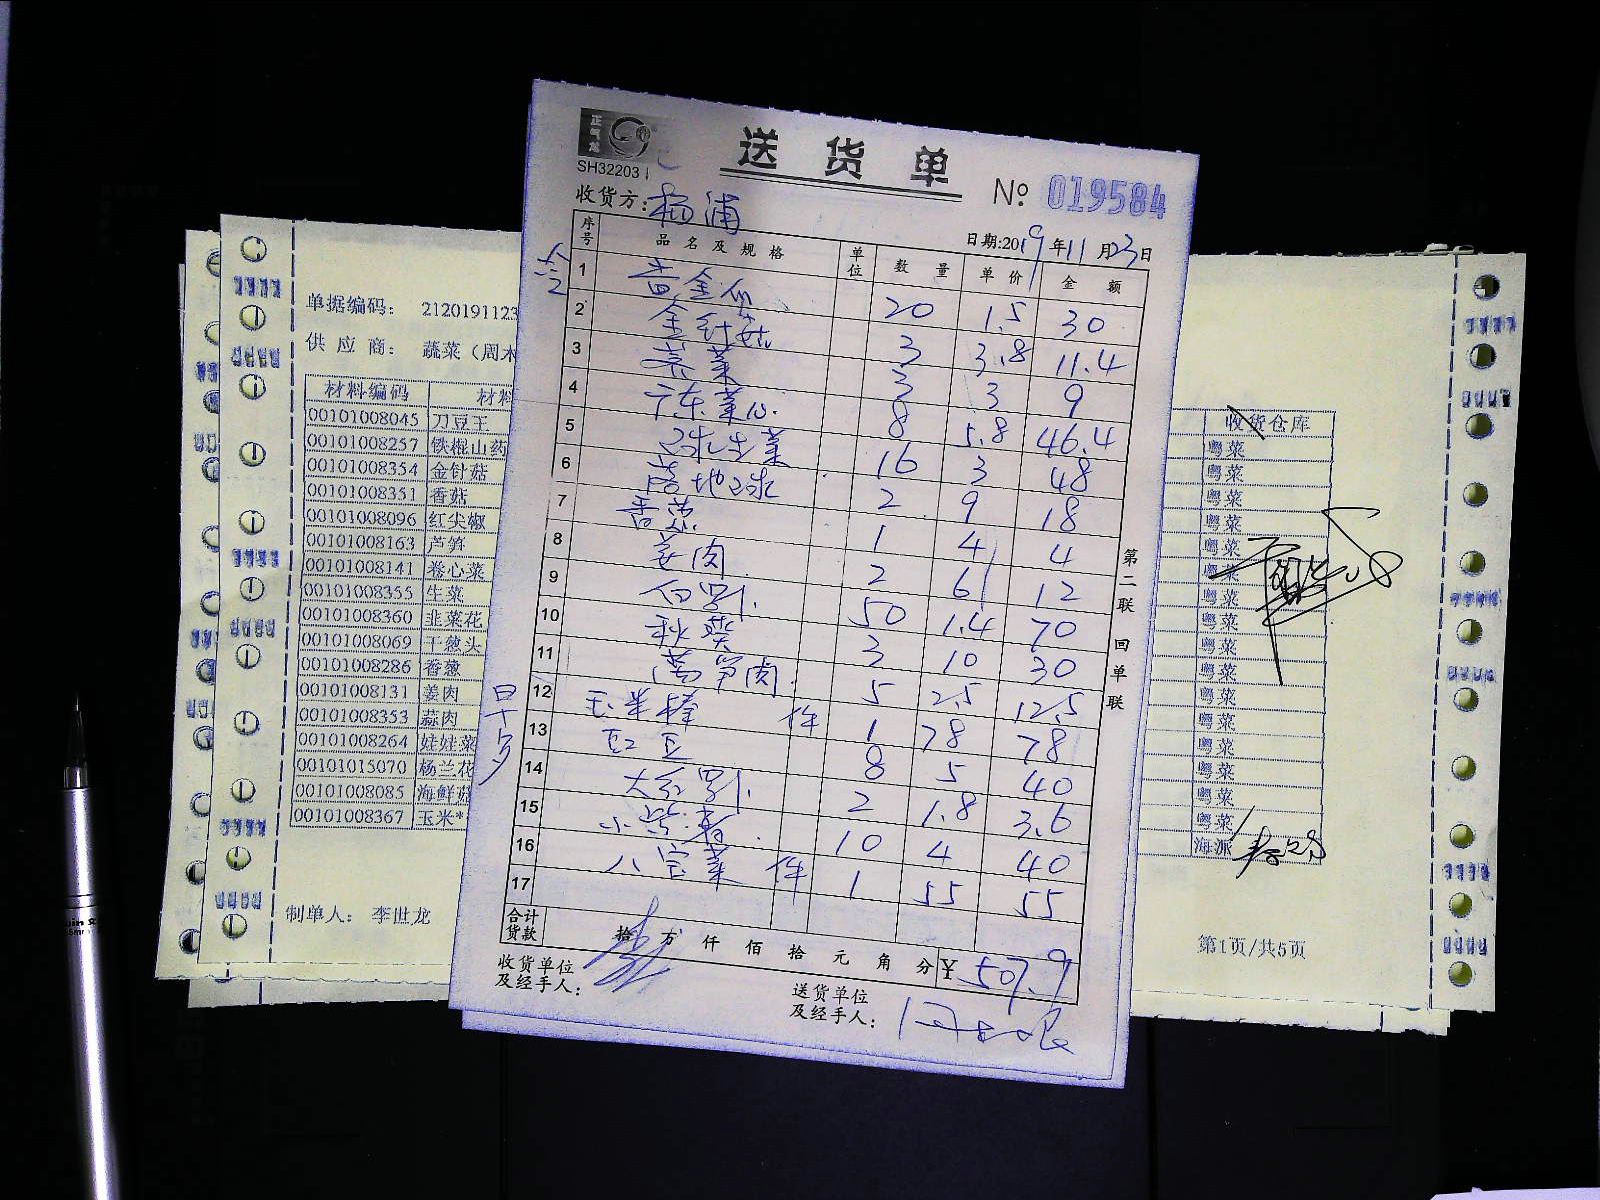 正气龙
SH32203
送货单
№ 019584
收货方: 杨浦
日期:2019年11月23日
序号 品名及规格 单位 数量 单价 金额
1 黄金瓜 20 1.5 30
2 金针菇 3 3.8 11.4
3 3 3 9
4 广东菜心 8 5.8 46.4
5 球生菜 16 3 48
6 2 9 18
7 香葱 1 4 4
8 姜肉 2 6 12
9 50 1.4 70
10 秋葵 3 10 30
11 莴笋肉 5 2.5 12.5
12 玉米棒 件 1 78 78
13 豇豆 8 5 40
14 2 1.8 3.6
15 小紫薯 10 4 40
16 八宝菜 件 1 55 55
17
合计货款 拾 万 仟 佰 拾 元 角 分 ¥ 507.9
收货单位及经手人:
送货单位及经手人:
第二联 回单联
单据编码: 2120191123
供应商: 蔬菜(周木
材料编码 材料
00101008045 刀豆王
00101008257 铁棍山药
00101008354 金针菇
00101008351 香菇
00101008096 红尖椒
00101008163 芦笋
00101008141 卷心菜
00101008355 生菜
00101008360 韭菜花
00101008069 干葱头
00101008286 香葱
00101008131 姜肉
00101008353 蒜肉
00101008264 娃娃菜
00101015070 杨兰花
00101008085 海鲜菇
00101008367 玉米*
制单人: 李世龙
收货仓库
粤菜
粤菜
粤菜
粤菜
粤菜
粤菜
粤菜
粤菜
粤菜
粤菜
粤菜
粤菜
粤菜
粤菜
粤菜
粤菜
海派
第1页/共5页